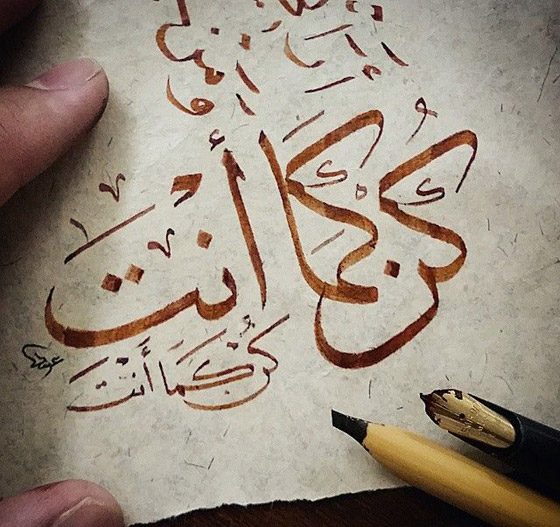 كُن كَمَا أَنتَ
كُن كَمَا أَنتَ